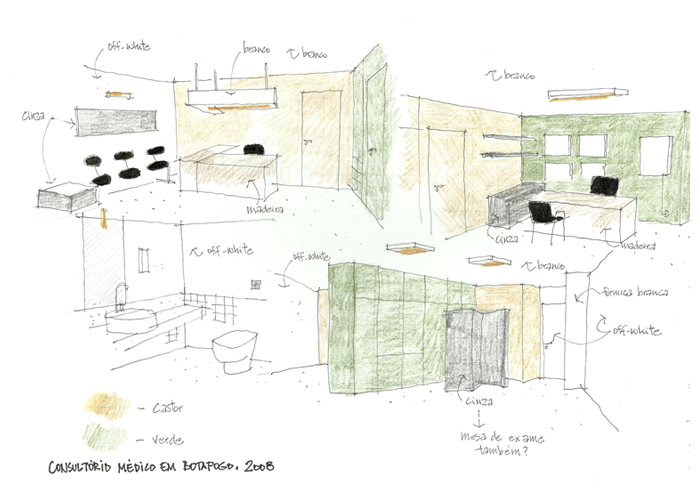 off-white
branco
branco
branco
cinza
madeira
cinza
madeira
off-white
off-white
branco
fórmica branca
off-white
cinza
mesa de exame
também?
- castor
- verde
CONSULTÓRIO MÉDICO EM BOTAFOGO. 2008